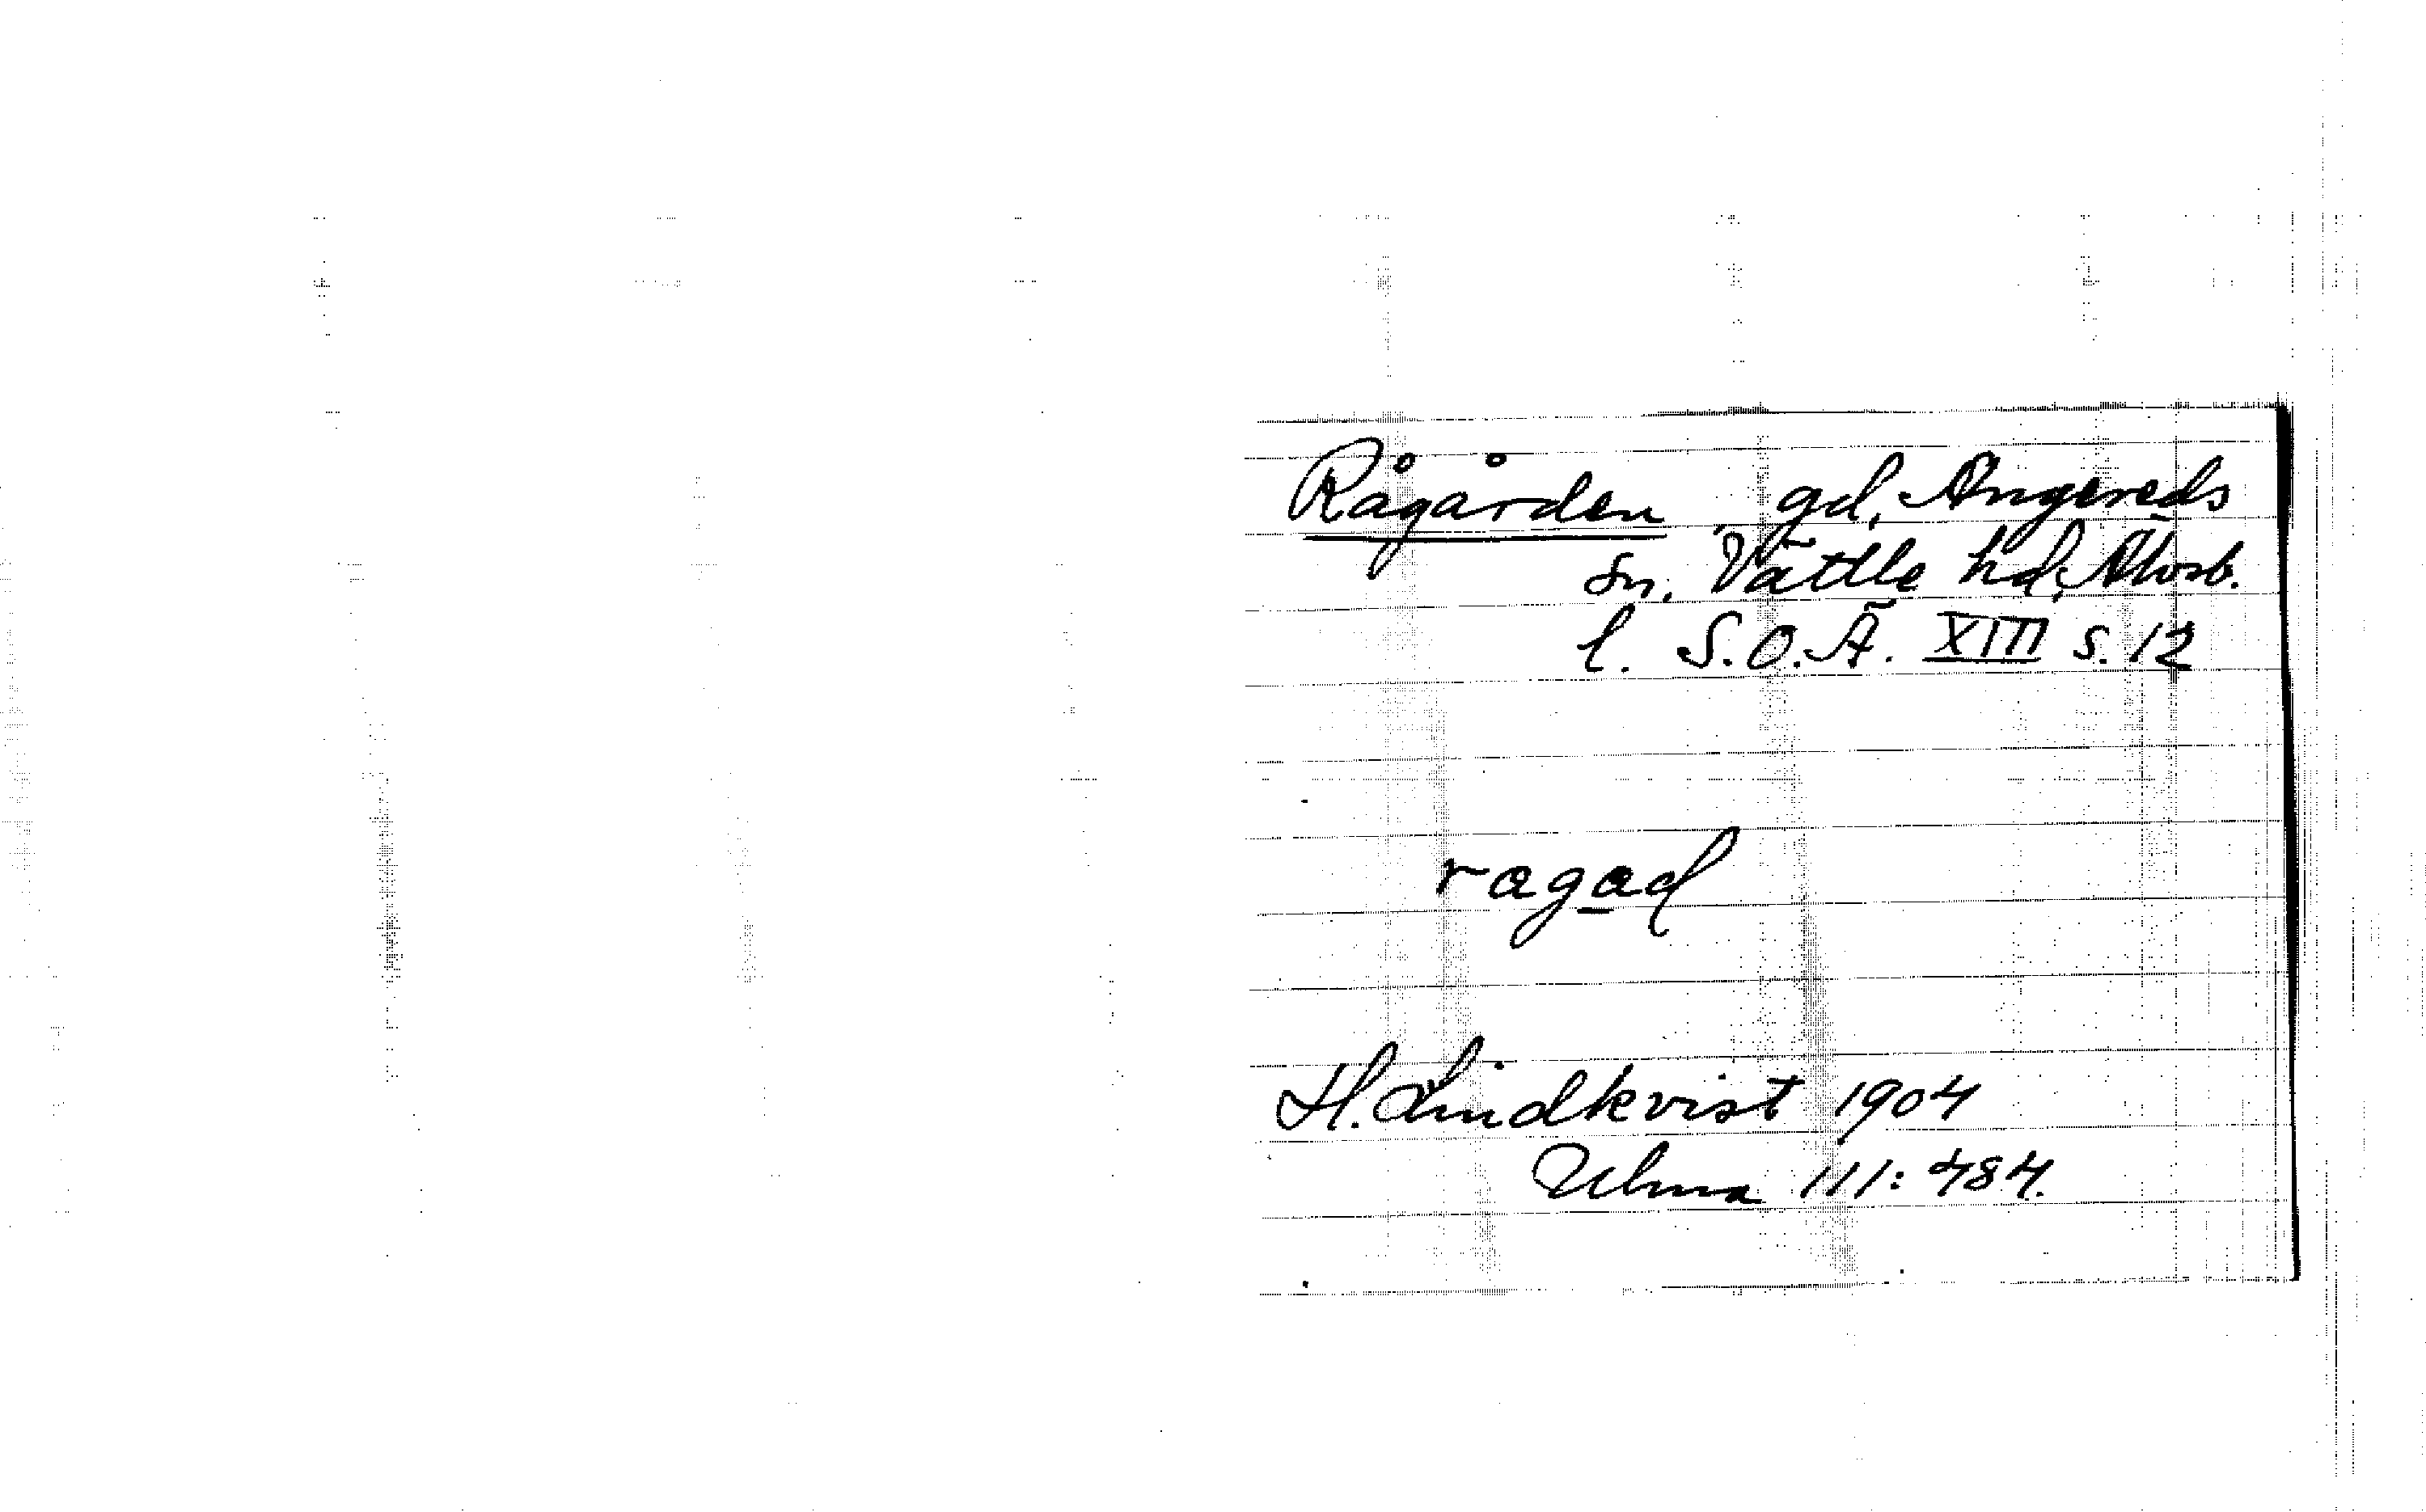 Rågården, gd, Angereds
sn. Vättle hd, Älvsb.
l. S.O.Ä. XIII s. 12
ragad
H. Lindkvist 1904
Ulma 111: 484.